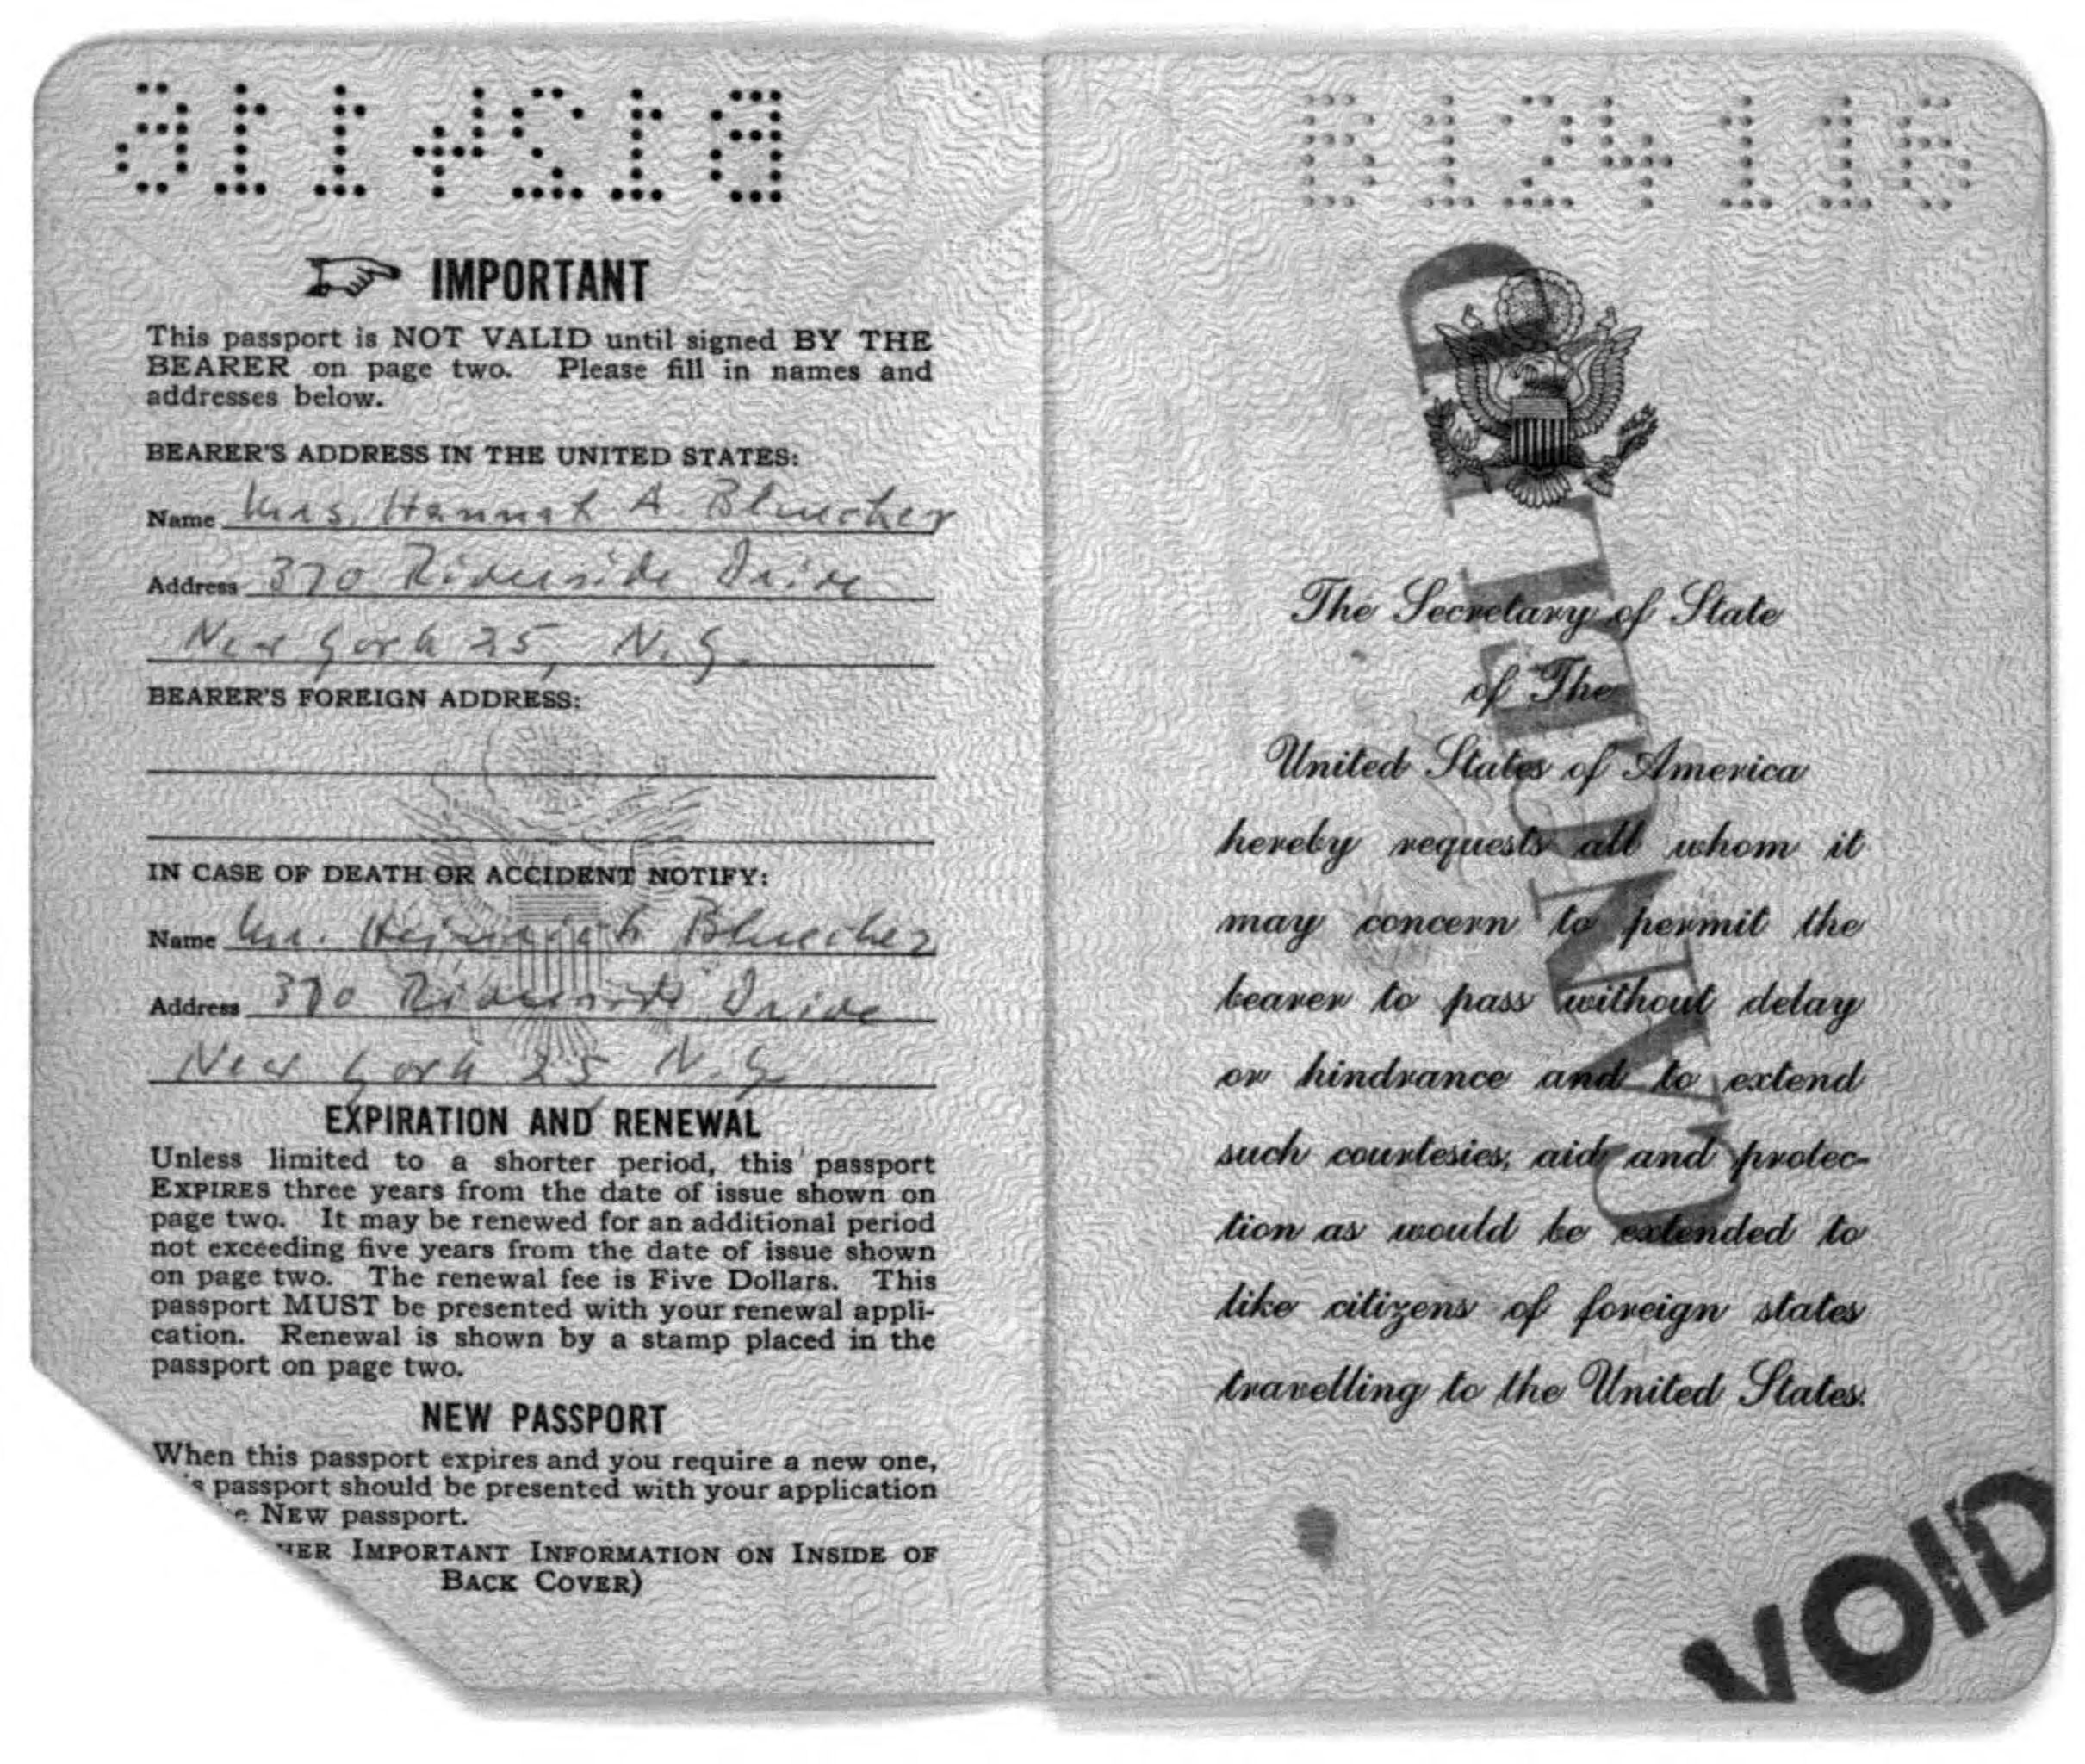 B124116
IMPORTANT
This passport is NOT VALID until signed BY THE
BEARER on page two. Please fill in names and
addresses below.
BEARER'S ADDRESS IN THE UNITED STATES:
Name Mrs. Hannah A. Bluecher
Address 370 Riverside Drive
New York 25, N.Y.
BEARER'S FOREIGN ADDRESS:
IN CASE OF DEATH OR ACCIDENT NOTIFY:
Name Mr. Heinrich Bluecher
Address 370 Riverside Drive
New York 25, N.Y.
EXPIRATION AND RENEWAL
Unless limited to a shorter period, this passport
EXPIRES three years from the date of issue shown on
page two. It may be renewed for an additional period
not exceeding five years from the date of issue shown
on page two. The renewal fee is Five Dollars. This
passport MUST be presented with your renewal appli-
cation. Renewal is shown by a stamp placed in the
passport on page two.
NEW PASSPORT
When this passport expires and you require a new one,
s passport should be presented with your application
e NEW passport.
HER IMPORTANT INFORMATION ON INSIDE OF
BACK COVER)
B124116
CANCELLED
The Secretary of State
of The
United States of America
hereby requests all whom it
may concern to permit the
bearer to pass without delay
or hindrance and to extend
such courtesies, aid and protec-
tion as would be extended to
like citizens of foreign states
travelling to the United States.
VOID